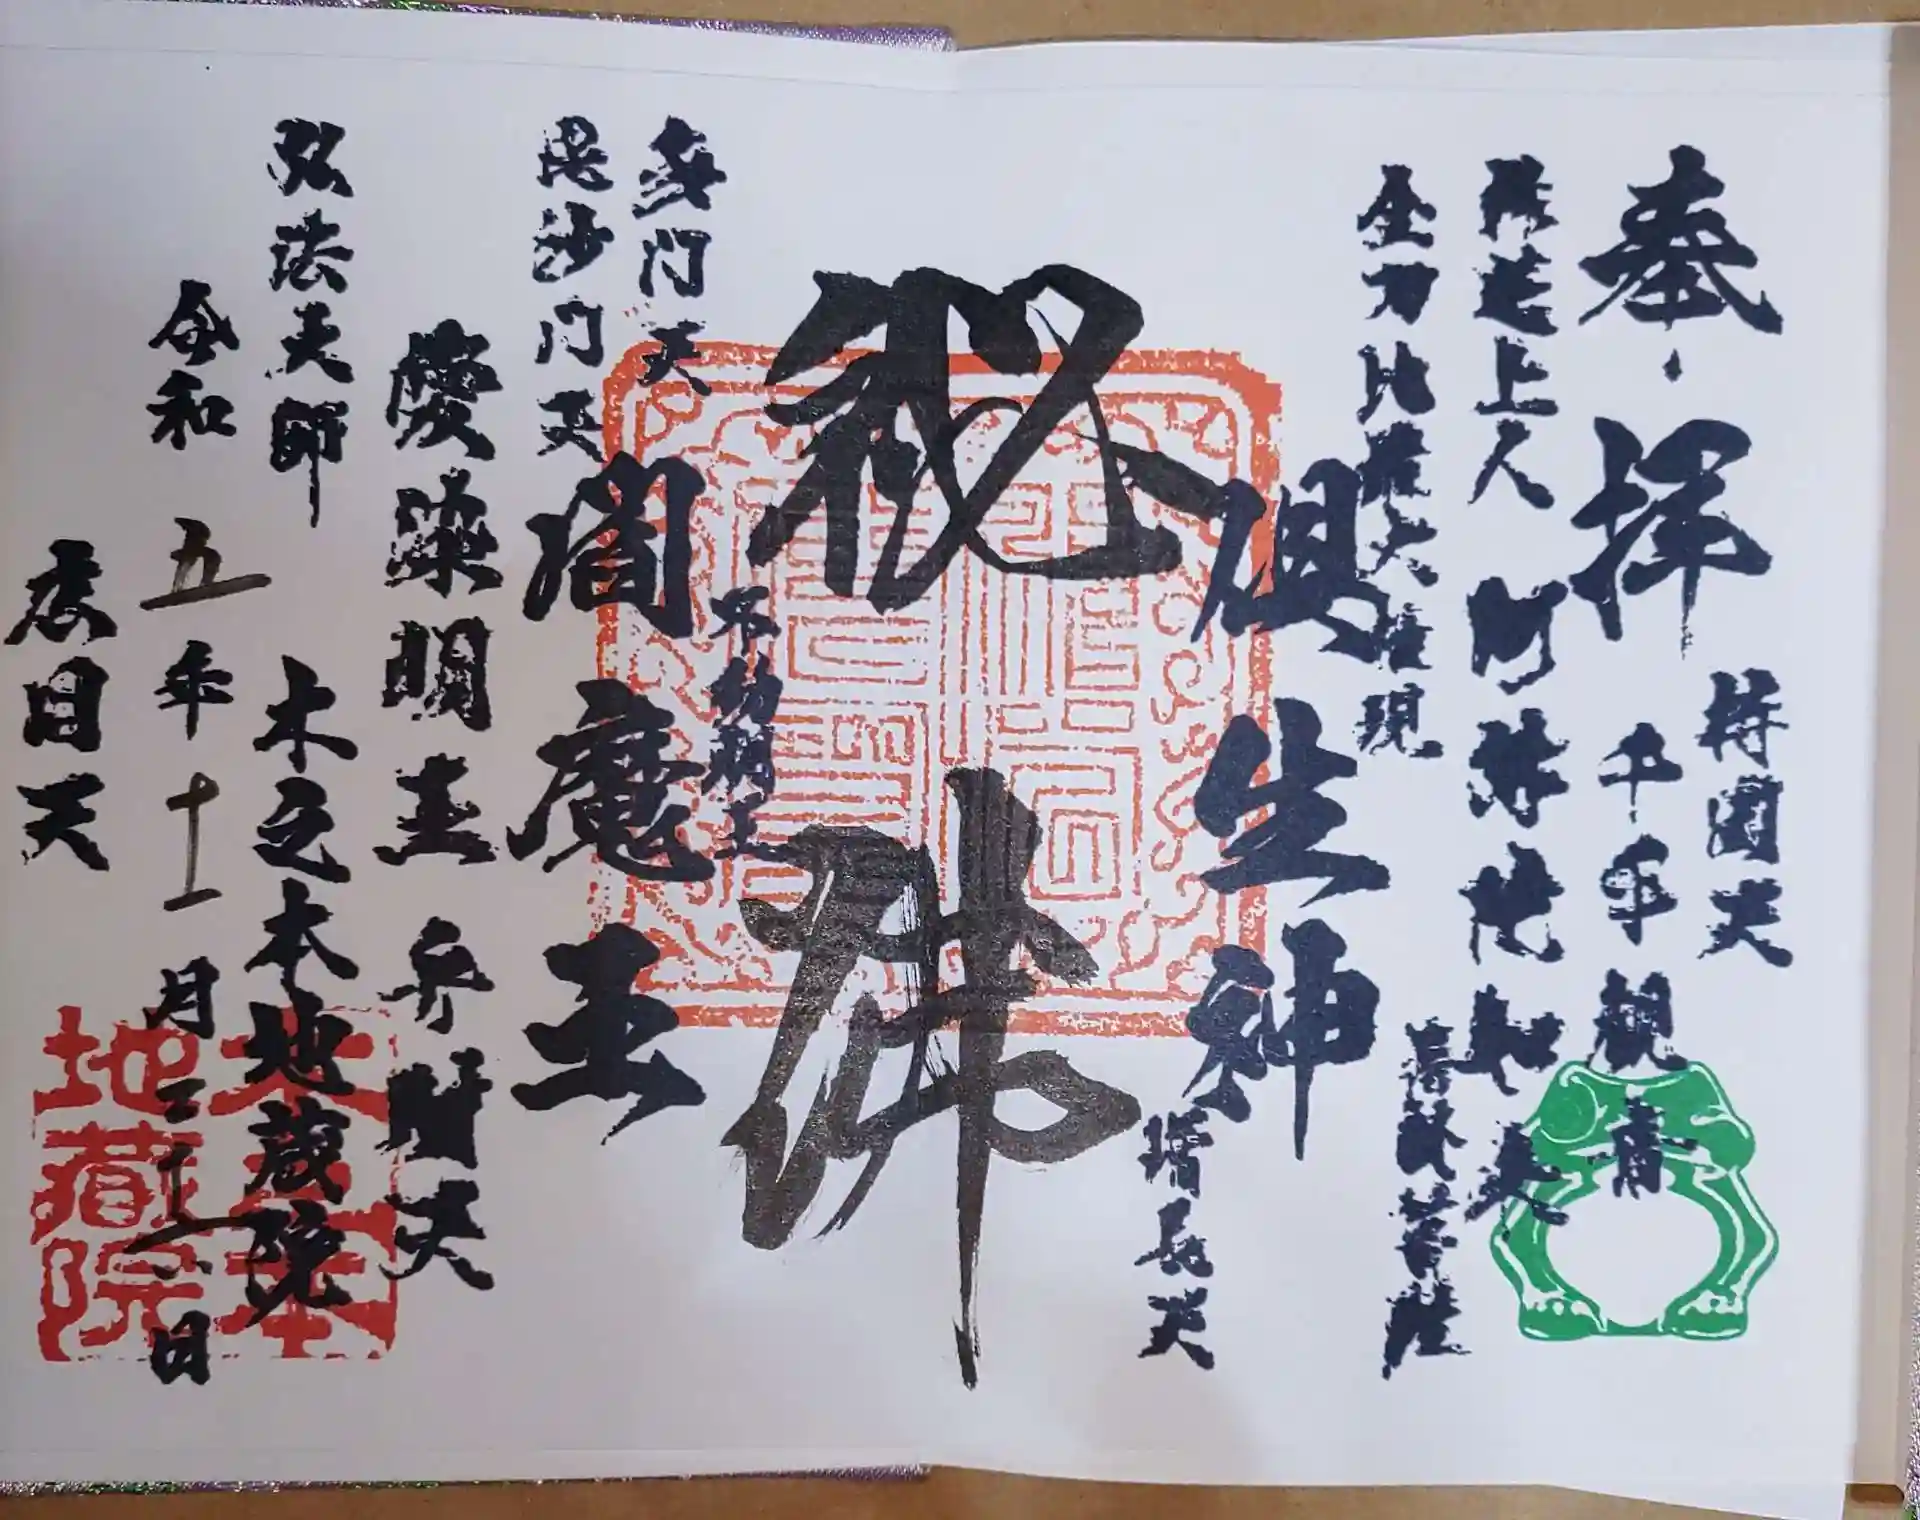 奉拝
持国天
千手観音
祐運上人
阿弥陀如来
菩薩
金刀比羅大権現
倶生神
増長天
秘佛
不動明王
多門天
毘沙门天
閻魔王
愛染明王
弁財天
弘法大師
木之本地蔵院
令和五年十一月二十一日
広目天
木之本
地蔵院